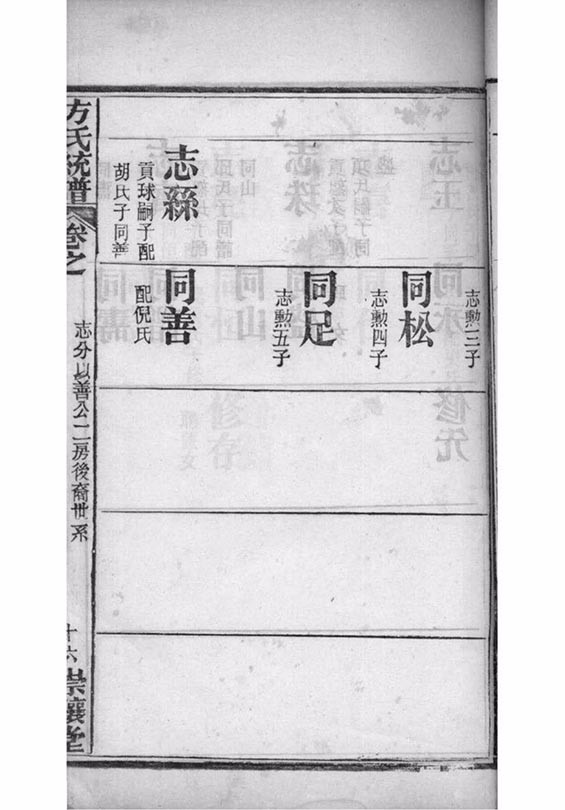 志勲三子
同松
志勲四子
同足
志勲五子
志繇
貢球嗣子配
胡氏子同善
同善
配倪氏
方氏統譜
卷之
志分以善公二房後裔世系
十六
崇讓堂